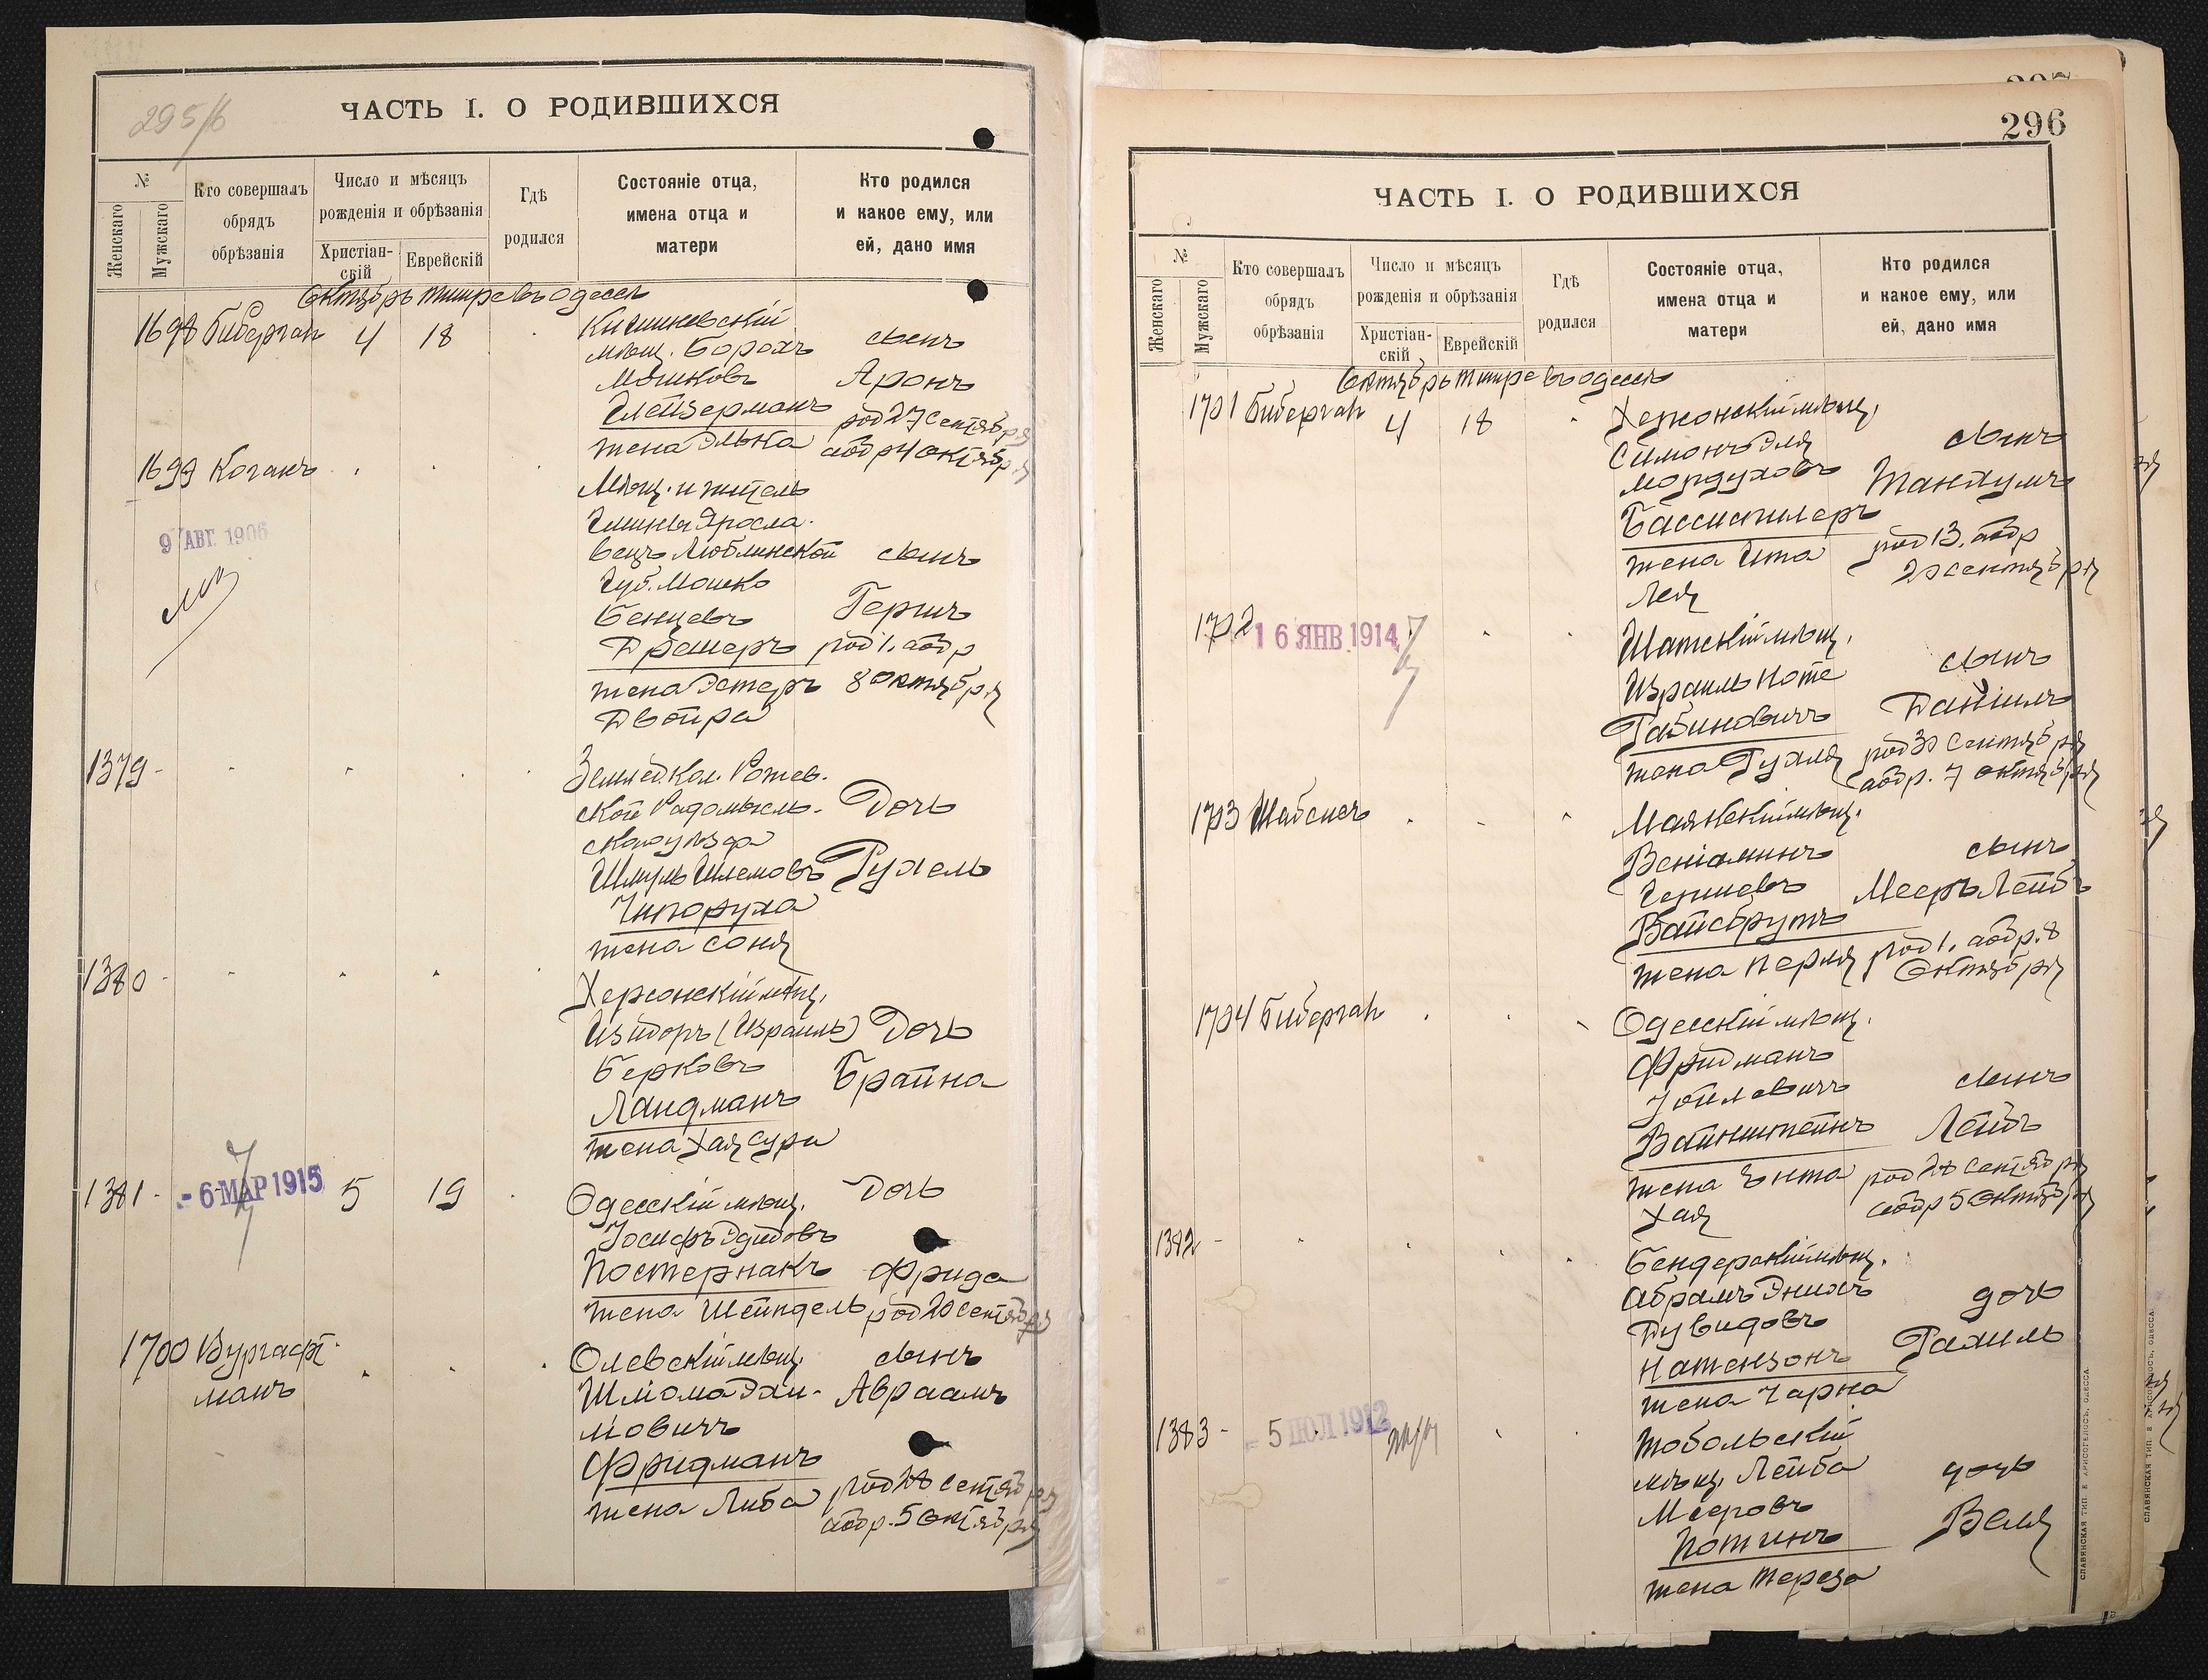 295/б
ЧАСТЬ I. О РОДИВШИХСЯ
№
Женскаго
Мужскаго
Кто совершалъ
обрядъ
обрѣзанія
Число и мѣсяцъ
рожденія и обрѣзанія
Христіан-
скій
Еврейскій
Гдѣ
родился
Состояніе отца,
имена отца и
матери
Кто родился
и какое ему, или
ей, дано имя
Октябрь тишре въ одессе
1698 Бибергал 4 18
Кишиневскій
мѣщ. Борохъ
Мошковъ
Глейзерманъ
жена Элька
сынъ
Аронъ
род 27 сентября
аобр 4 октября
1699 Коганъ
9 АВГ. 1906
Мѣщ. и житель
вецъ Люблинской
Губ. Мошко
Бенцевъ
Дрешеръ
жена Эстеръ
Двойра
сынъ
Гершъ
род 1. аобр
8 октября
1379 -
Землед Кол. Ротев.
ской Радомысль-
скаго уѣзда
Шмуль Шлемовъ
Чипоруха
жена Соня
Дочь
Рухель
1380 -
Херсонскій мѣщ.
Изидоръ (Израиль)
Берковъ
Ландманъ
жена Хая Сура
Дочь
Брайна
1381 - - 6 МАР 1915 5 19
Одесскій мѣщ.
Іосифъ Эдидовъ
Постернакъ
жена Шейндель
Дочь
Фрида
род 20 сентября
1700 Вургафт-
манъ
Олевскій мѣщ.
Шліома Хаи-
мовичъ
Фридманъ
жена Либа
сынъ
Авраамъ
род 28 сентября
аобр. 5 октября
296
ЧАСТЬ I. О РОДИВШИХСЯ
№
Женскаго
Мужскаго
Кто совершалъ
обрядъ
обрѣзанія
Число и мѣсяцъ
рожденія и обрѣзанія
Христіан-
скій
Еврейскій
Гдѣ
родился
Состояніе отца,
имена отца и
матери
Кто родился
и какое ему, или
ей, дано имя
Октябрь тишре въ одессе
1701 Бибергал 4 18
Херсонскій мѣщ.
Симонъ Эля
Мордуховъ
Бассистперъ
жена Ита
Лея
сынъ
Танхумъ
род 13. аобр
20 сентября
1702 16 ЯНВ. 1914
Шатскій мѣщ.
Израиль Ноте
Рабиновичъ
жена Рухля
сынъ
Даніилъ
род 30 сентября
аобр. 7 октября
1703 Шайсисъ
Маякскій мѣщ.
Веніаминъ
Гершевъ
Вайсбрутъ
жена Перля
сынъ
Мееръ Лейбъ
род 1. аобр. 8
октября
1704 Бибергал
Одесскій мѣщ.
Фридманъ
Іойлевичъ
Вайнштейнъ
жена Ента
Хая
сынъ
Лейбъ
род 28 сентября
аобр 5 октября
1382 -
Бендерскій мѣщ.
Абрамъ Энихъ
Дувидовъ
Натензонъ
жена Чарна
дочь
Рахиль
1383 - - 5 ІЮЛ 1912
Тобольскій
мѣщ. Лейба
Мееровъ
Потинъ
жена Тереза
дочь
Веля
СЛАВЯНСКАЯ ТИП. Е ХРИСОГЕЛОСЪ, ОДЕССА.